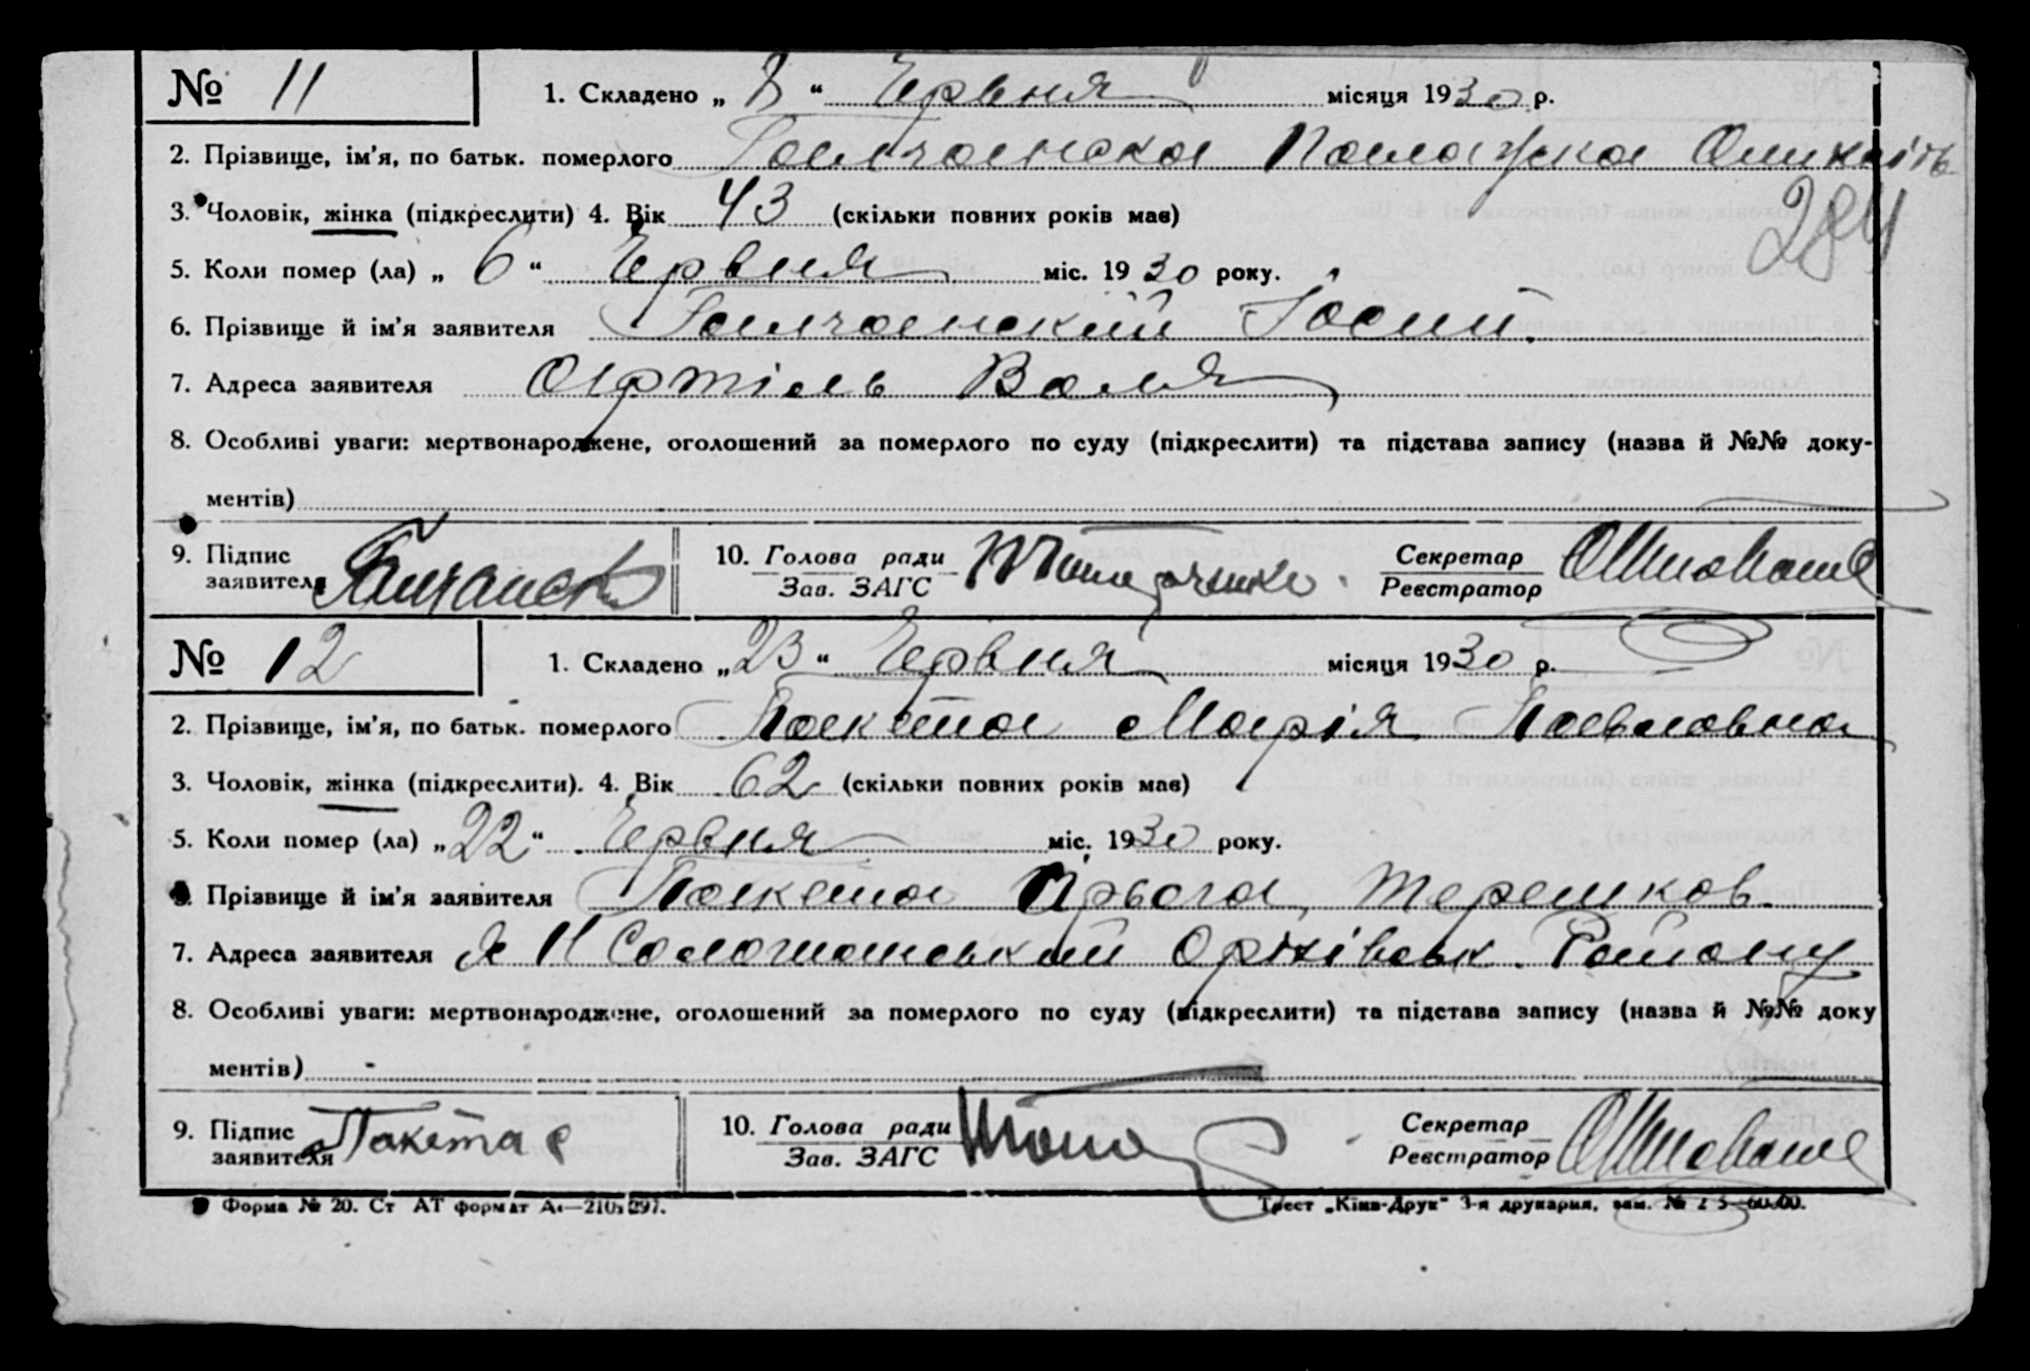 № 11 1. Складено „ 8 “ Червня місяця 1930 р.
2. Прізвище, ім'я, по батьк. померлого Галчанска Палажка
284
3. Чоловік, жінка (підкреслити) 4. Вік 43 (скільки повних років має)
5. Коли помер (ла) „ 6 “ Червня міс. 1930 року.
6. Прізвище й ім'я заявителя Галчанский
7. Адреса заявителя Артіль Воля
8. Особливі уваги: мертвонароджене, оголошений за померлого по суду (підкреслити) та підстава запису (назва й №№ доку-
ментів)
9. Підпис заявителя 10. Голова ради Зав. ЗАГС Секретар Реєстратор
№ 12 1. Складено „ 23 “ Червня місяця 1930 р.
2. Прізвище, ім'я, по батьк. померлого Пакета Марія Павловна
3. Чоловік, жінка (підкреслити). 4. Вік 62 (скільки повних років має)
5. Коли помер (ла) „ 22 “ Червня міс. 1930 року.
Прізвище й ім'я заявителя Пакета Терешков.
7. Адреса заявителя Оржівськ. Району
8. Особливі уваги: мертвонароджене, оголошений за померлого по суду (підкреслити) та підстава запису (назва й №№ доку
ментів)
9. Підпис заявителя Пакета 10. Голова ради Зав. ЗАГС Секретар Реєстратор
Форма № 20. Ст АТ формат А4—210х297. Трест „Київ-Друк“ 3-я друкарня, зам. №